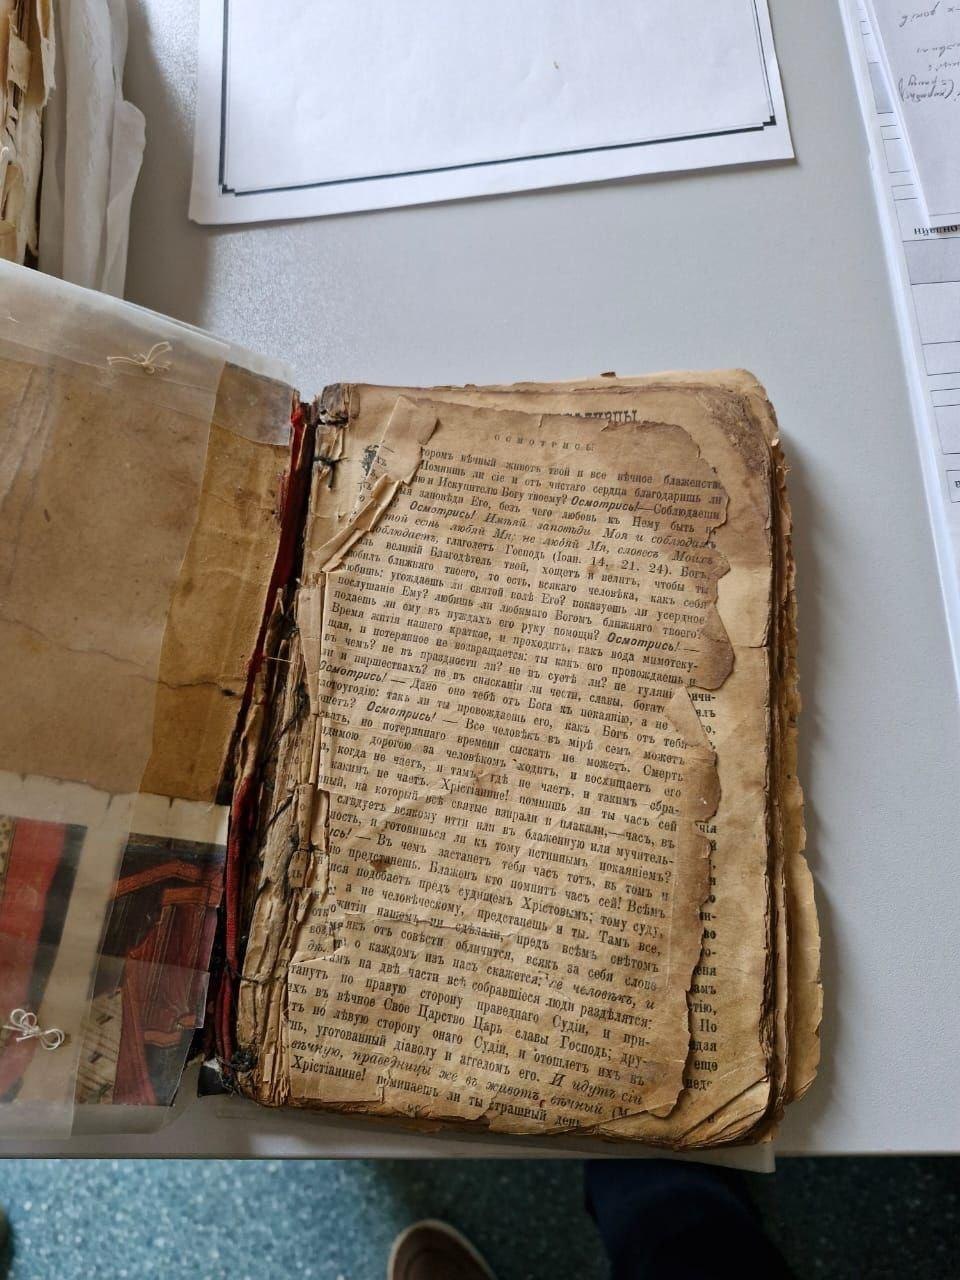 ОСМОТРИСЬ
торомъ вѣчный животъ твой и все вѣчное блаженство
Помнишь ли сіе и отъ чистаго сердца благодаришь ли
ю и Искупителю Богу твоему? Осмотрись!—Соблюдаеши
я заповѣди Его, безъ чего любовь къ Нему быть н
? Осмотрись! Имѣяй заповѣди Моя и соблюдаяй
той есть любяй Мя; не любяй Мя, словесъ Моихъ
облюдаетъ, глаголетъ Господь (Іоан. 14, 21. 24). Богъ,
ль великій Благодѣтель твой, хощетъ и велитъ, чтобы ты
любилъ ближняго твоего, то есть, всякаго человѣка, какъ себя
любишь: угождаешь ли святой волѣ Его? показуешь ли усердное
послушаніе Ему? любишь ли любимаго Богомъ ближняго твоего?
подаешь ли ему въ нуждахъ его руку помощи? Осмотрись! —
Время житія нашего краткое, и проходитъ, какъ вода мимотеку-
щая, и потерянное не возвращается: ты какъ его провождаешь и
въ чемъ? не въ праздности ли? не въ суетѣ ли? не гуляні
ли и пиршествахъ? не въ снисканіи ли чести, славы, богатс
Осмотрись! — Дано оно тебѣ отъ Бога къ покаянію, а не
лотоугодію: такъ ли ты провождаешь его, какъ Богъ отъ тебя
щетъ? Осмотрись! — Все человѣкъ въ мірѣ семъ можетъ
скать, но потеряннаго времени сыскать не можетъ. Смерть
идимою дорогою за человѣкомъ ходитъ, и восхищаетъ его
а, когда не чаетъ, и тамъ, гдѣ не чаетъ, и такимъ обра-
какимъ не чаетъ. Хрістіанине! помнишь ли ты часъ сей
ный, на который всѣ святые взирали и плакали,—часъ, въ
слѣдуетъ всякому итти или въ блаженную или мучитель-
ность, и готовишься ли къ тому истиннымъ покаяніемъ?
ись! — Въ чемъ застанетъ тебя часъ тотъ, въ томъ и
ю предстанешь. Блаженъ кто помнитъ часъ сей! Всѣмъ
ися подобаетъ предъ судищемъ Хрістовымъ; тому суду,
а не человѣческому, предстанешь и ты. Тамъ все,
житіи нашемъ ни сдѣлали, предъ всѣмъ свѣтомъ
якъ отъ совѣсти обличится, всякъ за себя слово
о каждомъ изъ насъ скажется: се человѣкъ, и
Тамъ на двѣ части всѣ собравшіеся люди раздѣлятся:
танутъ по правую сторону праведнаго Судіи, и при-
ихъ въ вѣчное Свое Царство Царь славы Господь; дру-
тъ по лѣвую сторону онаго Судіи, и отошлетъ ихъ въ
нь, уготованный діаволу и аггеломъ его. И идутъ сіи
вѣчную, праведницы же въ животъ вѣчный (М
Хрістіанине! поминаешь ли ты страшный день